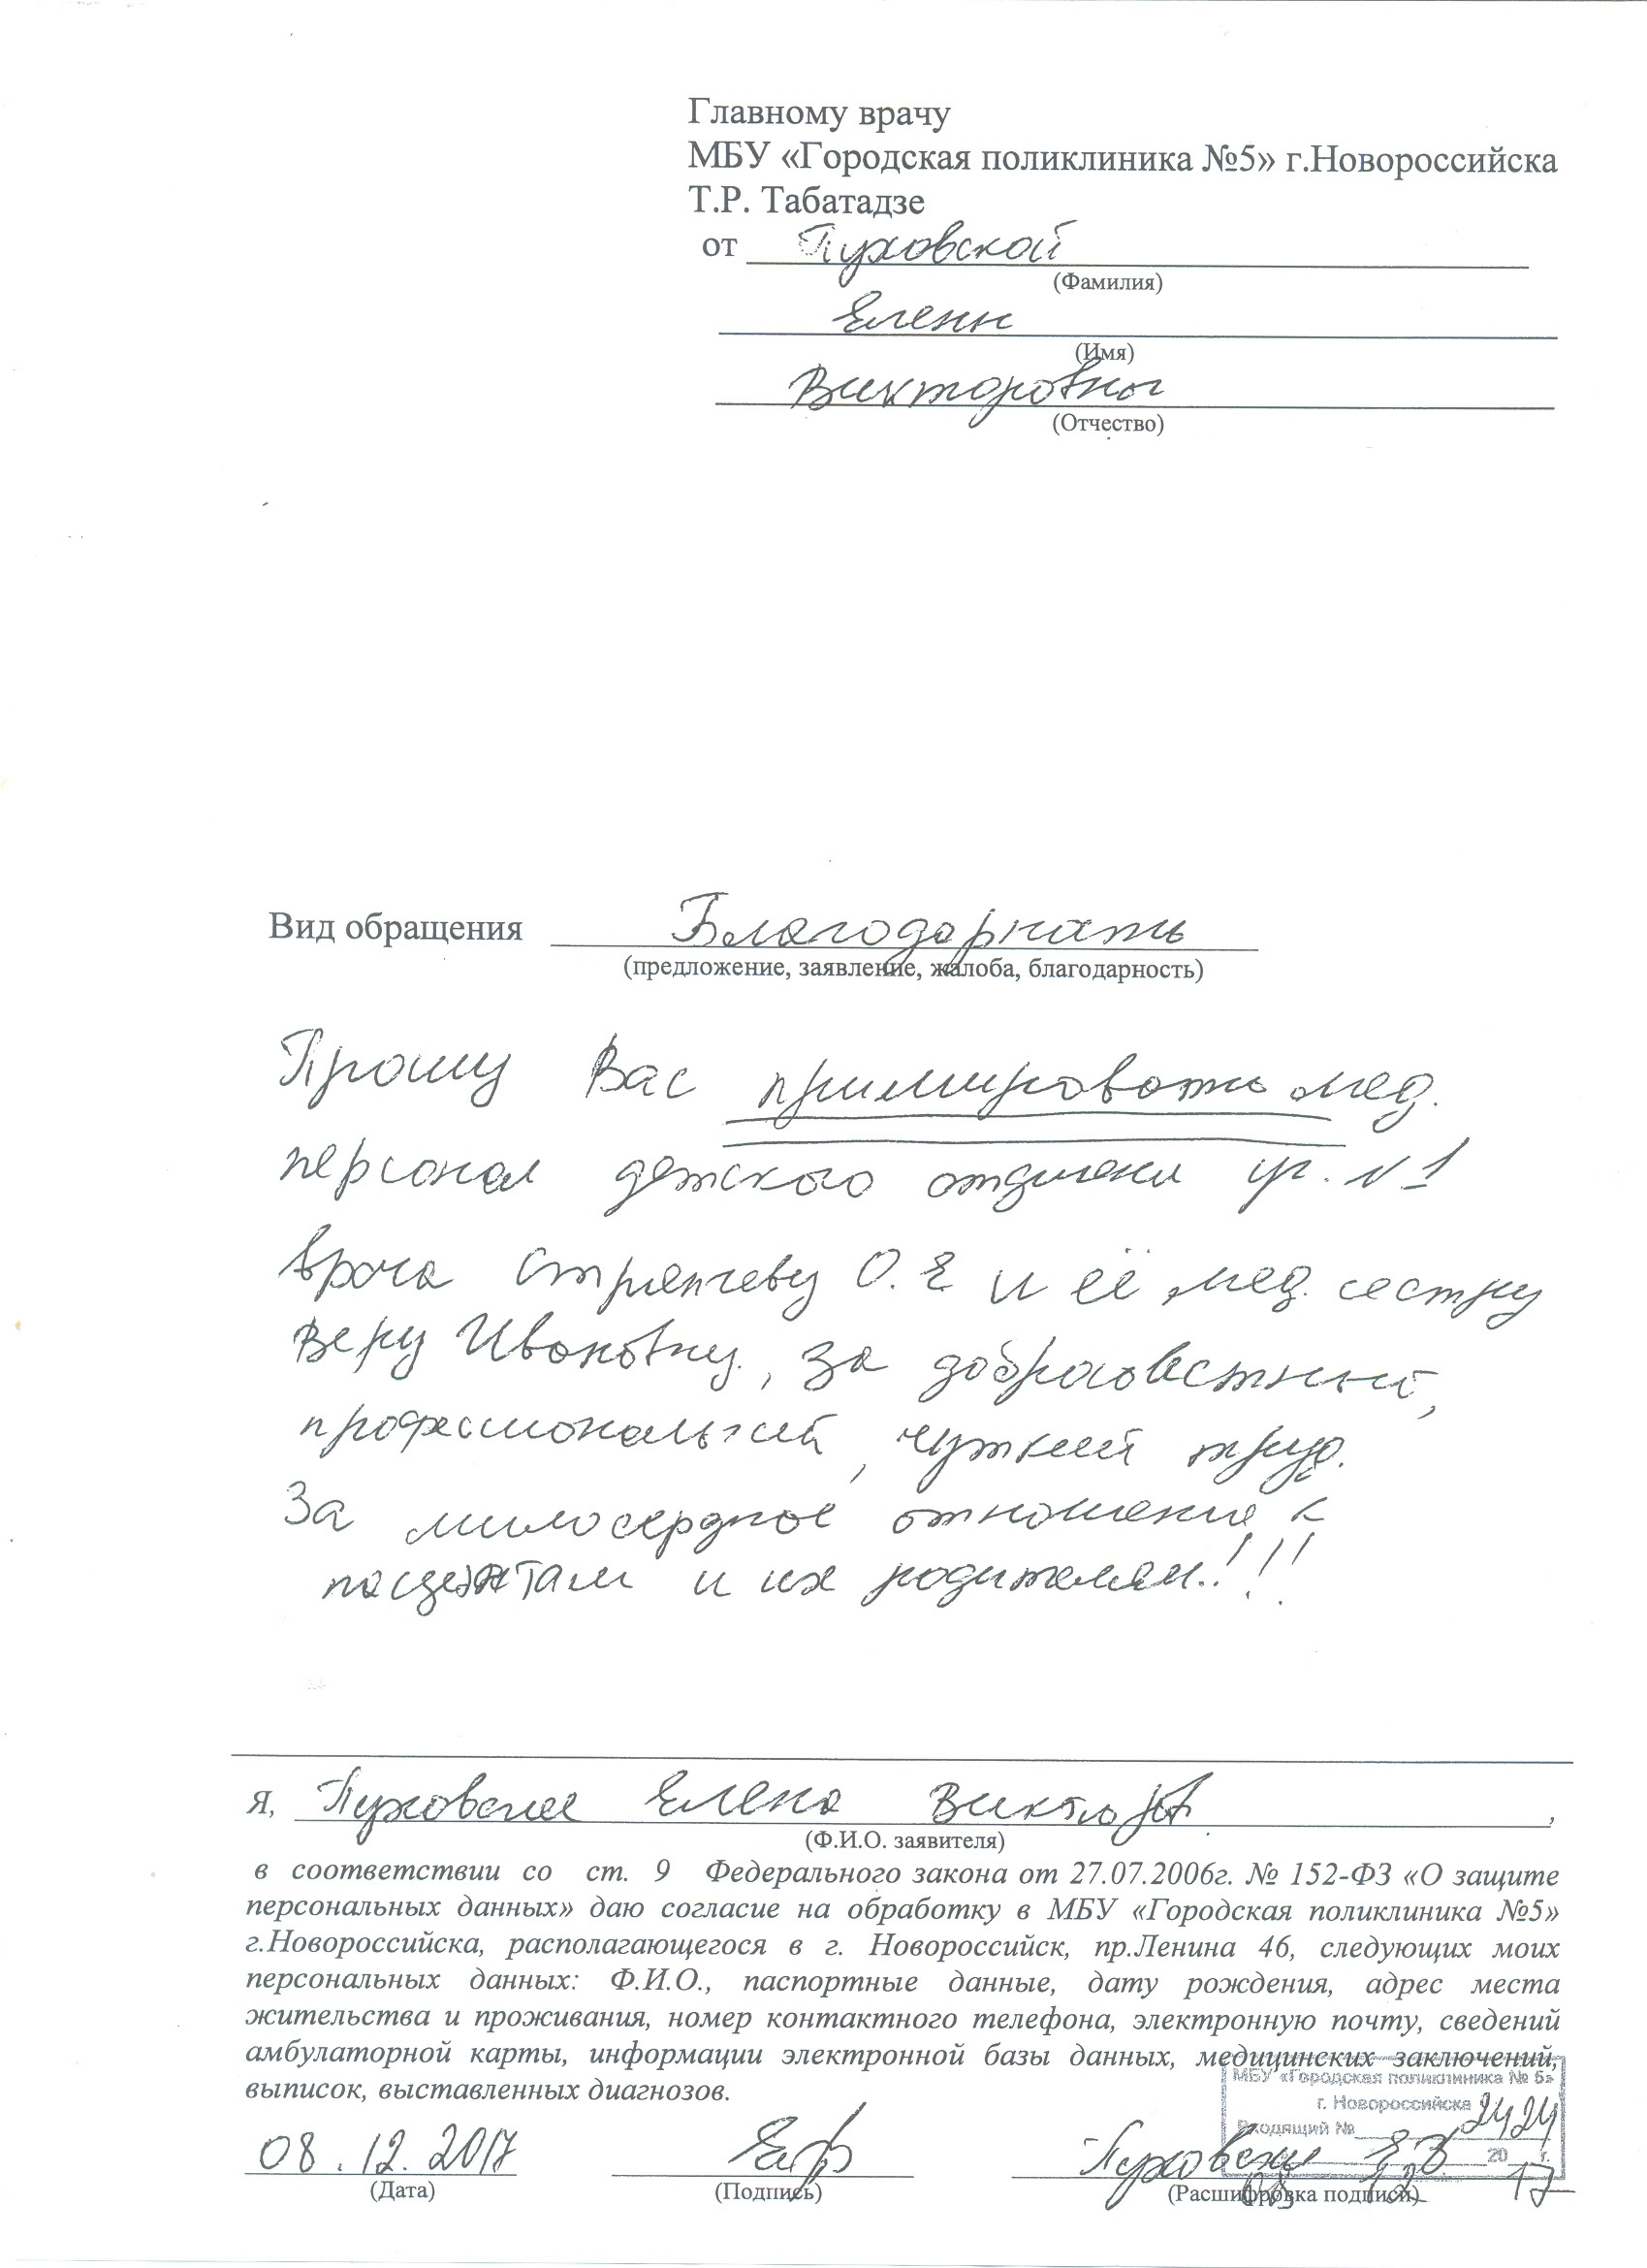 Главному врачу
МБУ «Городская поликлиника №5» г.Новороссийска
Т.Р. Табатадзе
от Пуховской
(Фамилия)
Елены
(Имя)
Викторовны
(Отчество)
Вид обращения Благодарность
(предложение, заявление, жалоба, благодарность)
Прошу Вас примировать мед.
персонал детского отделени уч. №1
врача Стряпчеву О.Е и её мед. сестру
Веру Ивановну, за добросовестный,
профессиональный, чуткий труд.
За милосердное отношение к
пациентам и их родителям!!!
Я, Пуховская Елена Виктор ,
(Ф.И.О. заявителя)
в соответствии со ст. 9 Федерального закона от 27.07.2006г. № 152-ФЗ «О защите
персональных данных» даю согласие на обработку в МБУ «Городская поликлиника №5»
г.Новороссийска, располагающегося в г. Новороссийск, пр.Ленина 46, следующих моих
персональных данных: Ф.И.О., паспортные данные, дату рождения, адрес места
жительства и проживания, номер контактного телефона, электронную почту, сведений
амбулаторной карты, информации электронной базы данных, медицинских заключений,
выписок, выставленных диагнозов.
МБУ «Городская поликлиника № 5»
г. Новороссийска
Входящий № 2424
08 12 2017 г.
08.12.2017 Пуховская Е В
(Дата) (Подпись) (Расшифровка подписи)